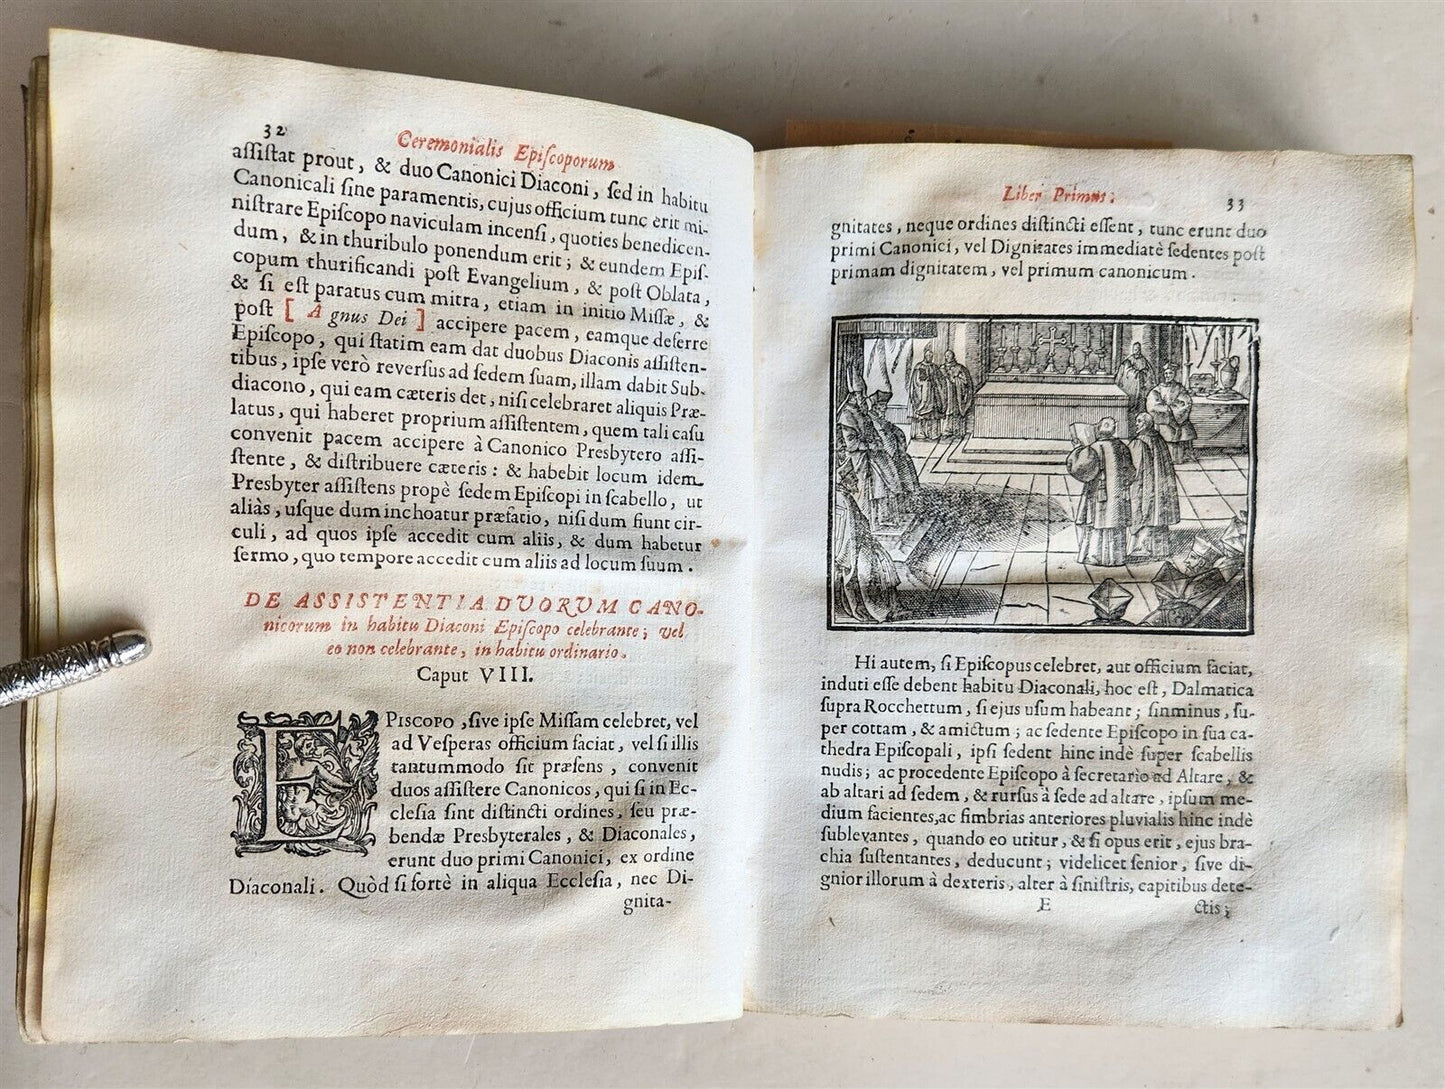 32
Ceremonialis Epiſcoporum
aſſiſtat prout, & duo Canonici Diaconi, ſed in habitu
Canonicali ſine paramentis, cujus officium tunc erit mi-
niſtrare Epiſcopo naviculam incenſi, quoties benedicen-
dum, & in thuribulo ponendum erit; & eundem Epiſ-
copum thurificandi poſt Evangelium, & poſt Oblata,
& ſi eſt paratus cum mitra, etiam in initio Miſſæ, &
poſt [ Agnus Dei ] accipere pacem, eamque deferre
Epiſcopo, qui ſtatim eam dat duobus Diaconis aſſiſten-
tibus, ipſe verò reverſus ad ſedem ſuam, illam dabit Sub-
diacono, qui eam cæteris det, niſi celebraret aliquis Præ-
latus, qui haberet proprium aſſiſtentem, quem tali caſu
convenit pacem accipere à Canonico Presbytero aſſi-
ſtente, & diſtribuere cæteris: & habebit locum idem
Presbyter aſſiſtens propè ſedem Epiſcopi in ſcabello, ut
aliàs, uſque dum inchoatur præfatio, niſi dum fiunt cir-
culi, ad quos ipſe accedit cum aliis, & dum habetur
ſermo, quo tempore accedit cum aliis ad locum ſuum.
DE ASSISTENTIA DVORVM CANO-
nicorum in habitu Diaconi Epiſcopo celebrante; vel
eo non celebrante, in habitu ordinario.
Caput VIII.
EPISCOPO, ſive ipſe Miſſam celebret, vel
ad Veſperas officium faciat, vel ſi illis
tantummodo ſit præſens, convenit
duos aſſiſtere Canonicos, qui ſi in Ec-
cleſia ſint diſtincti ordines, ſeu præ-
bendæ Presbyterales, & Diaconales,
erunt duo primi Canonici, ex ordine
Diaconali. Quòd ſi fortè in aliqua Eccleſia, nec Di-
gnita-
Liber Primus.
33
gnitates, neque ordines diſtincti eſſent, tunc erunt duo
primi Canonici, vel Dignitates immediatè ſedentes poſt
primam dignitatem, vel primum canonicum.
Hi autem, ſi Epiſcopus celebret, aut officium faciat,
induti eſſe debent habitu Diaconali, hoc eſt, Dalmatica
ſupra Rocchettum, ſi ejus uſum habeant; ſinminus, ſu-
per cottam, & amictum; ac ſedente Epiſcopo in ſua ca-
thedra Epiſcopali, ipſi ſedent hinc indè ſuper ſcabellis
nudis; ac procedente Epiſcopo à ſecretario ad Altare, &
ab altari ad ſedem, & rurſus à ſede ad altare, ipſum me-
dium facientes, ac fimbrias anteriores pluvialis hinc indè
ſublevantes, quando eo utitur, & ſi opus erit, ejus bra-
chia ſuſtentantes, deducunt; videlicet ſenior, ſive di-
gnior illorum à dexteris, alter à ſiniſtris, capitibus dete-
E
ctis;